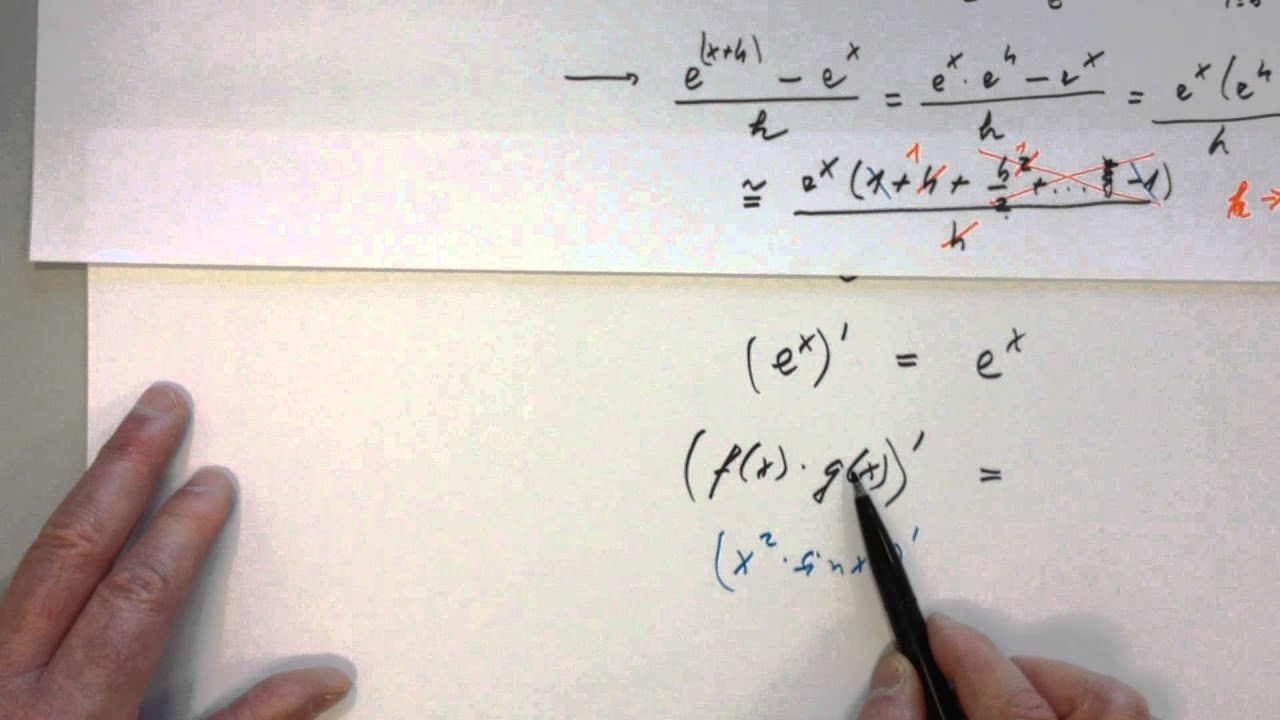 ⟶ (e^(x+h) − e^x)/h = (e^x · e^h − e^x)/h = e^x (e^h / h
≅ e^x (1 + h + h²/2 + ... − 1)/h h →
(e^x)' = e^x
(f(x) · g(x))' =
(x² · sin x)'